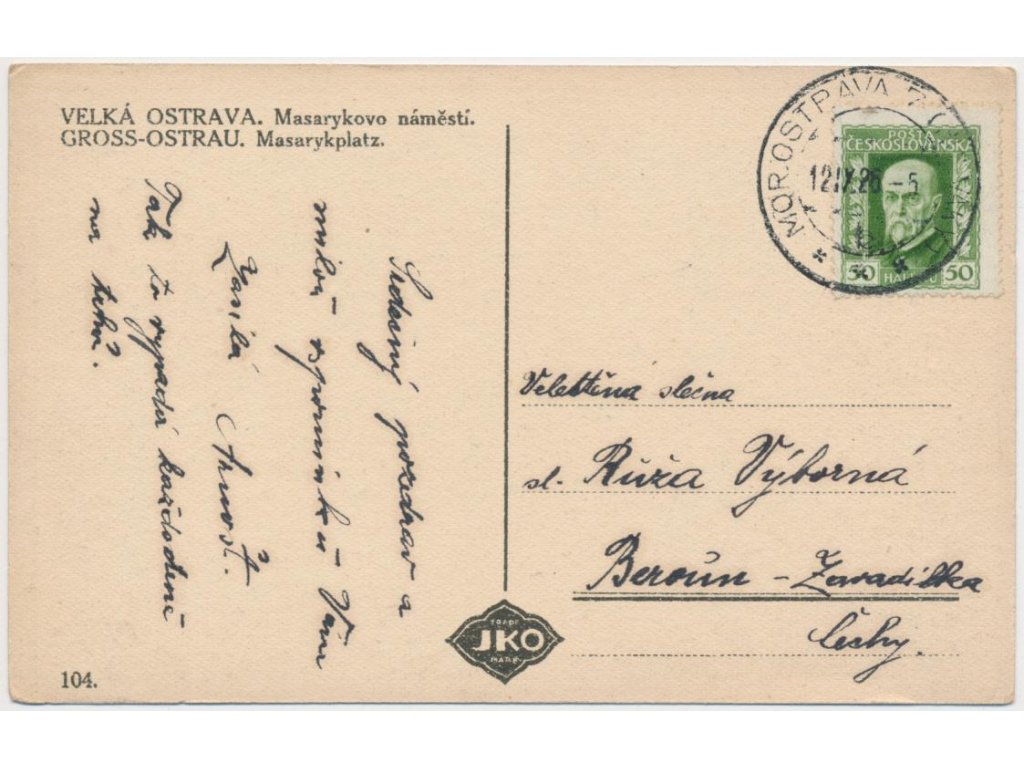 VELKÁ OSTRAVA. Masarykovo náměstí.
GROSS-OSTRAU. Masarykplatz.
Srdečný pozdrav a
milou vzpomínku Vám
Zasílá Arnošt.
Tak to vypadá každodeně
na trhu.
104.
TRADE
JKO
MARK
MOR. OSTRAVA
12.IX.26 -5
POŠTA
ČESKOSLOVENSKÁ
50 HALÉŘŮ 50
Velectěná slečna
sl. Růža Výborná
Beroun - Zavadilka
Čechy.